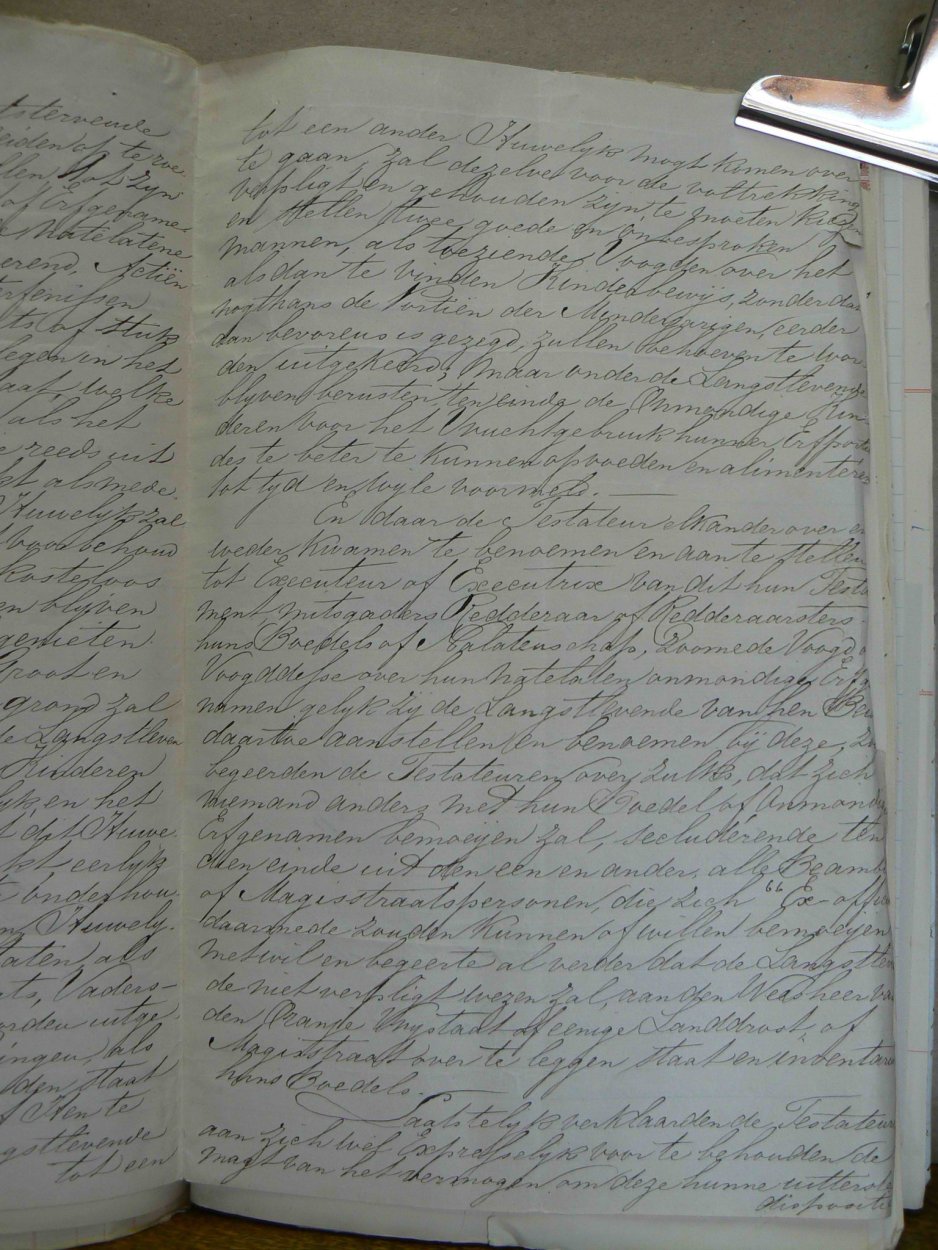 tstervende
eiden of te ree
llen tot zyn
of Erfgename
Natelatene
erend, Actiën
erfenissen
ts of stuk
legen en het
aat, welke
als het
reeds uit
kt alsmede
Huwelyk zal
voor behoud
kosteloos
en blijven
genieten
groot en
grond zal
Langstleven
Kinderen
yk en het
t dit Huwe
kt eerlijk
onderhou
Huwely
aten, als
ts, Vaders-
orden uitge
ingen, als
den staat
Hen te
gstlevende
tot een
tot een ander Huwelyk mogt komen over
te gaan, zal dezelve voor de voltrekking
verpligt en gehouden zyn, te moeten
en stellen twee goede en onbesproken
mannen, als toeziende Voogden over het
alsdan te vinden Kinderbewijs, zonder dat
nogthans de Portiën der Minderjarigen, eerder
dan bevorens is gezegd, zullen behoeven te wor
den uitgekeerd, maar onder de Langstlevende
blyven berusten ten einde de Onmondige Kin
deren voor het Vruchtgebruik hunner Erfportie
des te beter te kunnen opvoeden en alimenteren
tot tyd en wyle voormeld.
En daar de Testateur elkander over en
weder kwamen te benoemen en aan te stellen
tot Executeur of Executrix van dit hun Testa
ment, mitsgaders Redderaar of Redderaarster
huns Boedels of Nalatenschap, zoomede Voogd o
Voogddesse over hun natelaten onmondige Erfg
namen gelyk zij de Langstlevende van hen Bei
daartoe aanstellen en benoemen bij deze, zo
begeerden de Testateuren over zulks, dat zich
niemand anders met hun Boedel of Onmondige
Erfgenamen bemoeijen zal, secluderende ten
dien einde uit den een en ander, alle Beamb
of Magisstraatspersonen, die zich "Ex-offi
daarmede zouden kunnen of willen bemoeijen
met wil en begeerte al verder dat de Langstlev
de niet verpligt wezen zal, aan den Weesheer va
den Oranje Vrystaat of eenige Landdrost, of
Magistraat over te leggen staat en inventaris
huns Boedels.
Laatstelyk verklaarden de Testateur
aan zich wel Expresselyk voor te behouden de
magt van het vermogen om deze hunne uitterste
dispositie